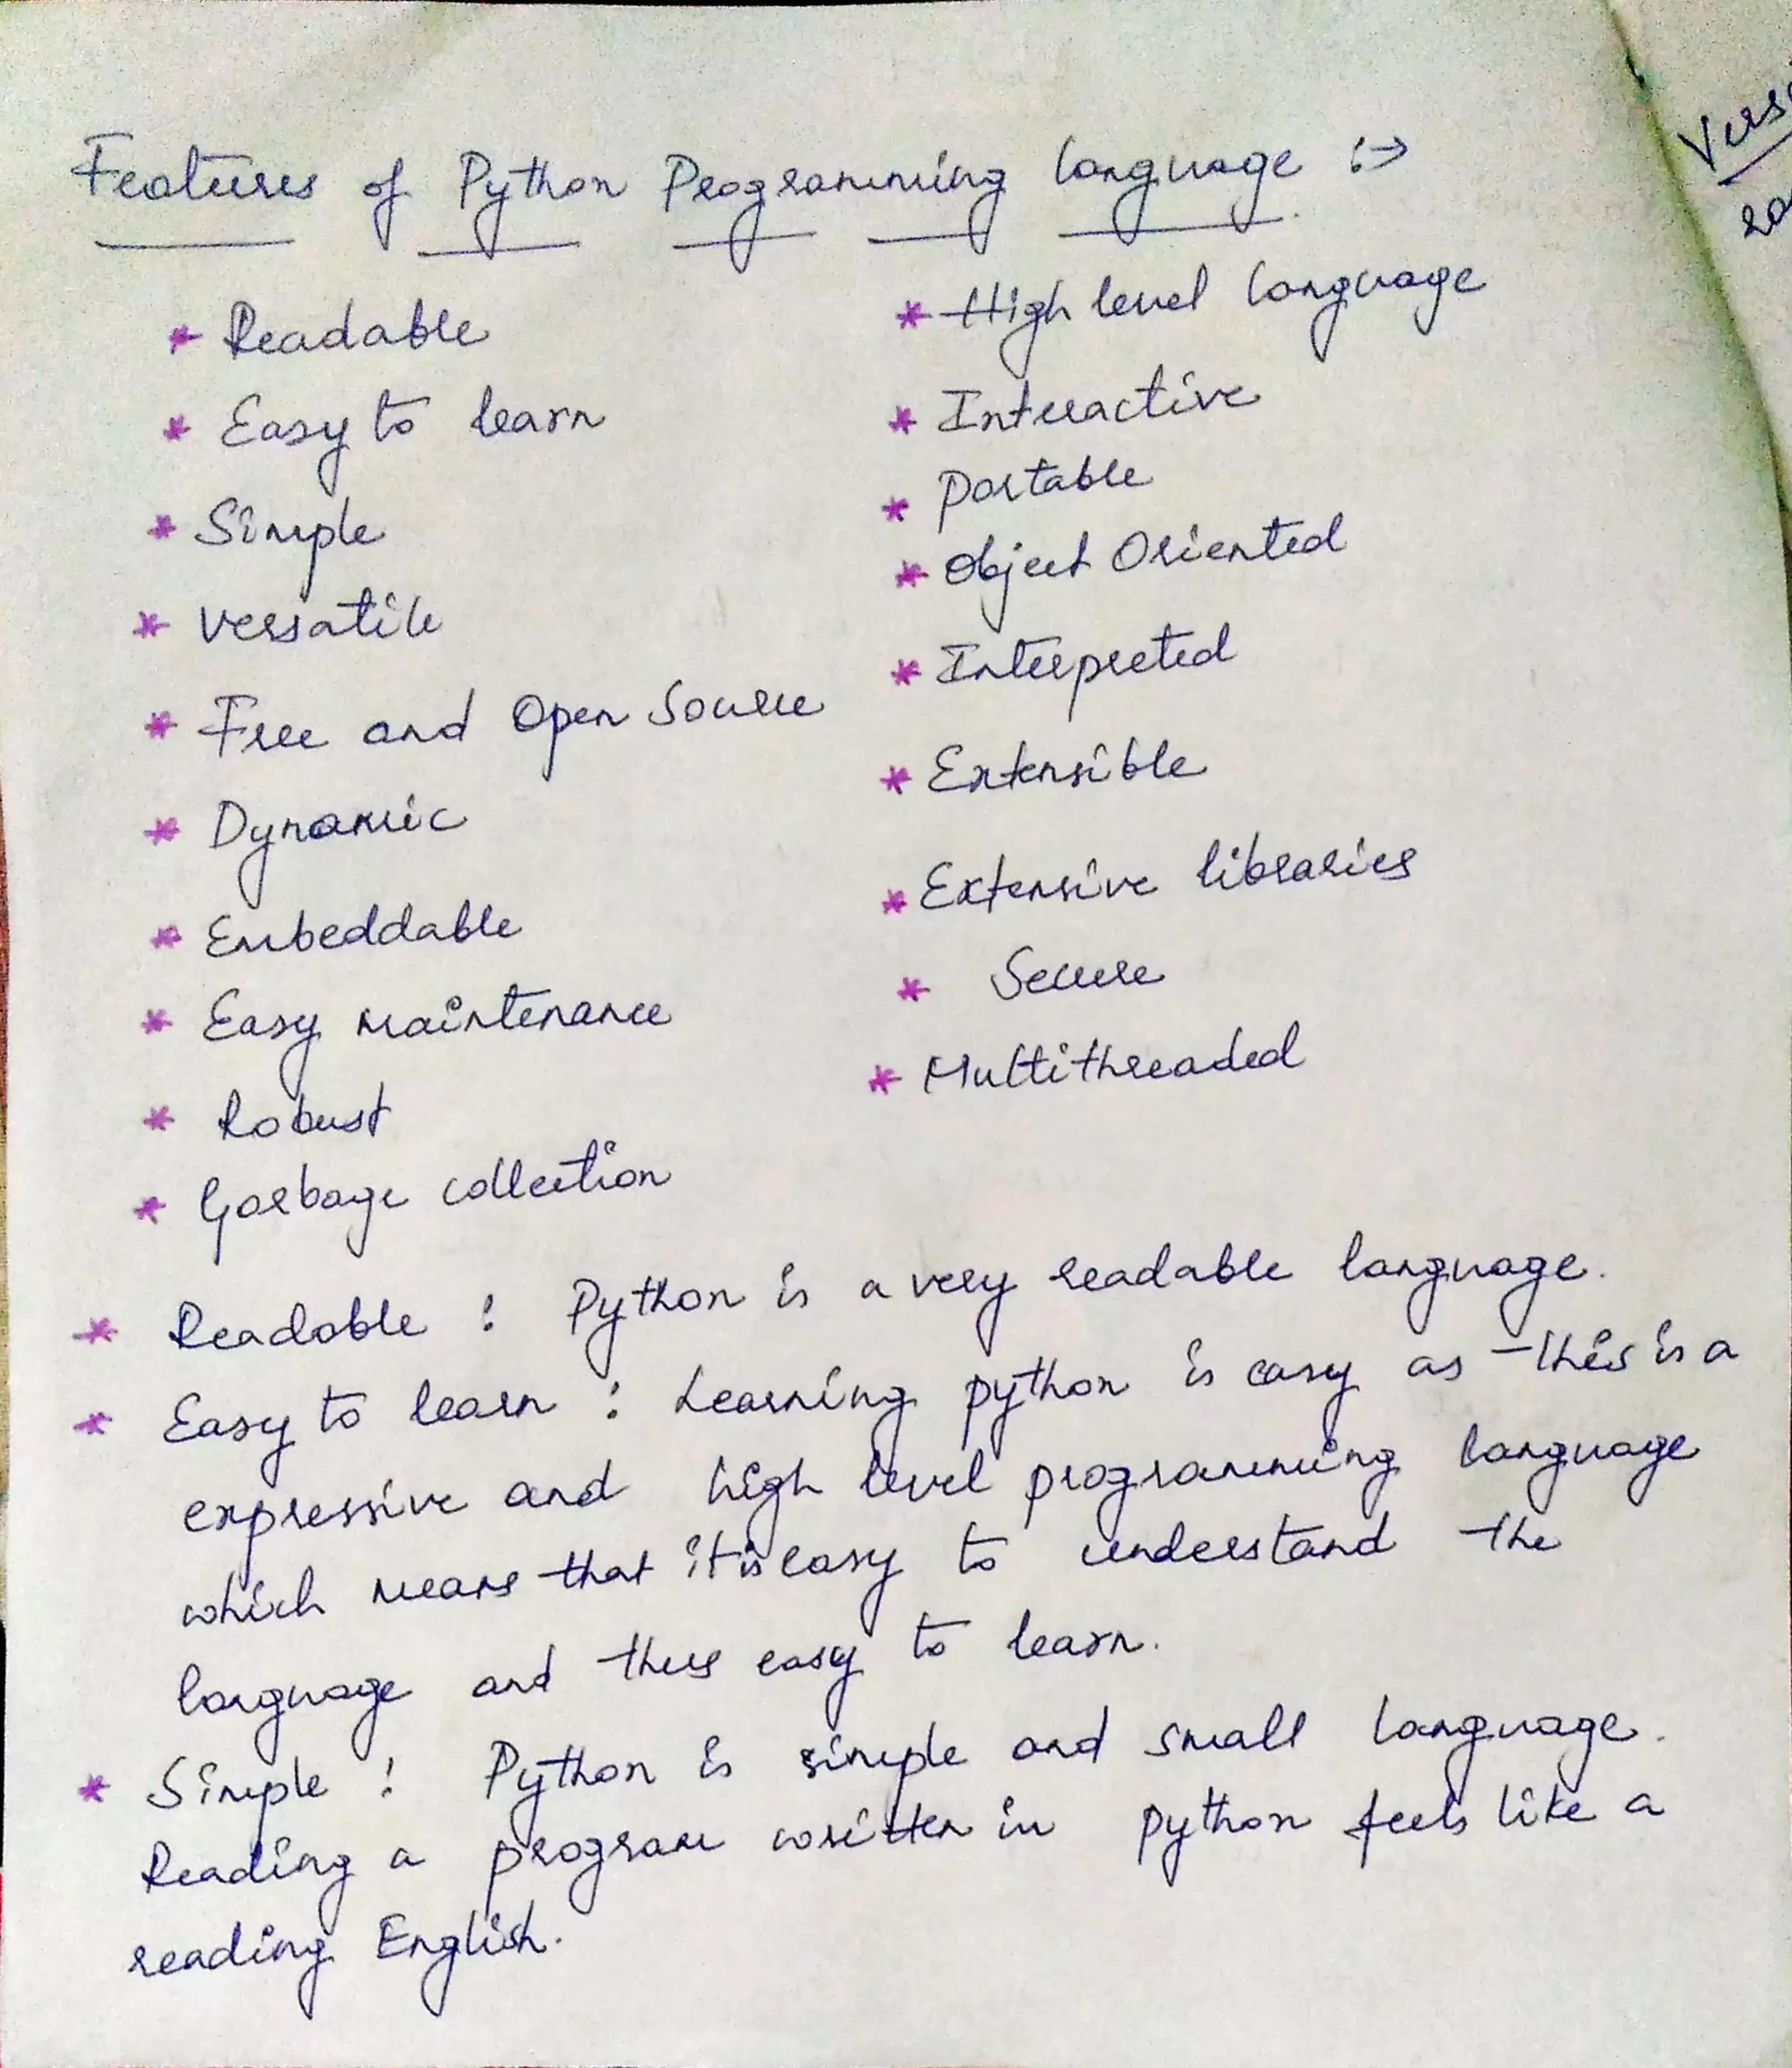 Features of Python Programming language :→
* Readable
* Easy to learn
* Simple
* Versatile
* Free and Open Source
* Dynamic
* Embeddable
* Easy maintenance
* Robust
* Garbage collection
* High level language
* Interactive
* Portable
* Object Oriented
* Interpreted
* Extensible
* Extensive libraries
* Secure
* Multithreaded
* Readable : Python is a very readable language.
* Easy to learn : Learning python is easy as this is a
expressive and high level programming language
which means that it is easy to understand the
language and thus easy to learn.
* Simple : Python is simple and small language.
Reading a program written in python feels like a
reading English.